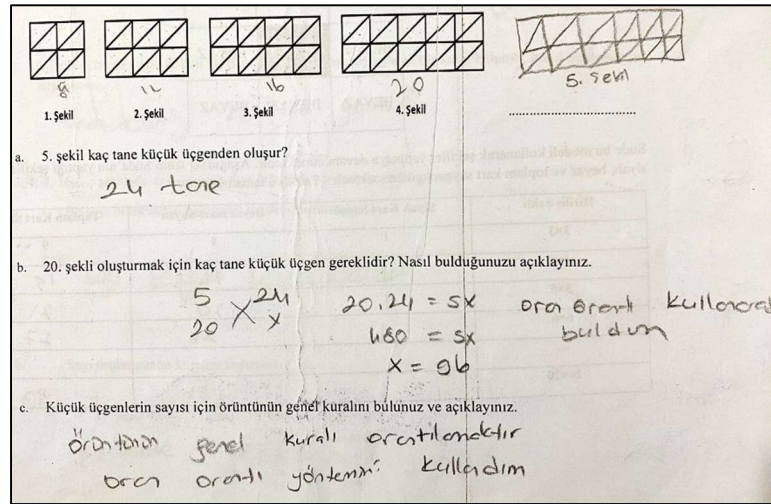 8 12 16 20 5. Şekil
1. Şekil 2. Şekil 3. Şekil 4. Şekil
a. 5. şekil kaç tane küçük üçgenden oluşur?
24 tane
b. 20. şekli oluşturmak için kaç tane küçük üçgen gereklidir? Nasıl bulduğunuzu açıklayınız.
5 24 20.24 = 5x oran orantı kullanarak
20 x 480 = 5x buldum
x = 96
c. Küçük üçgenlerin sayısı için örüntünün genel kuralını bulunuz ve açıklayınız.
örüntünün genel kuralı orantılamaktır
oran orantı yöntemini kullandım